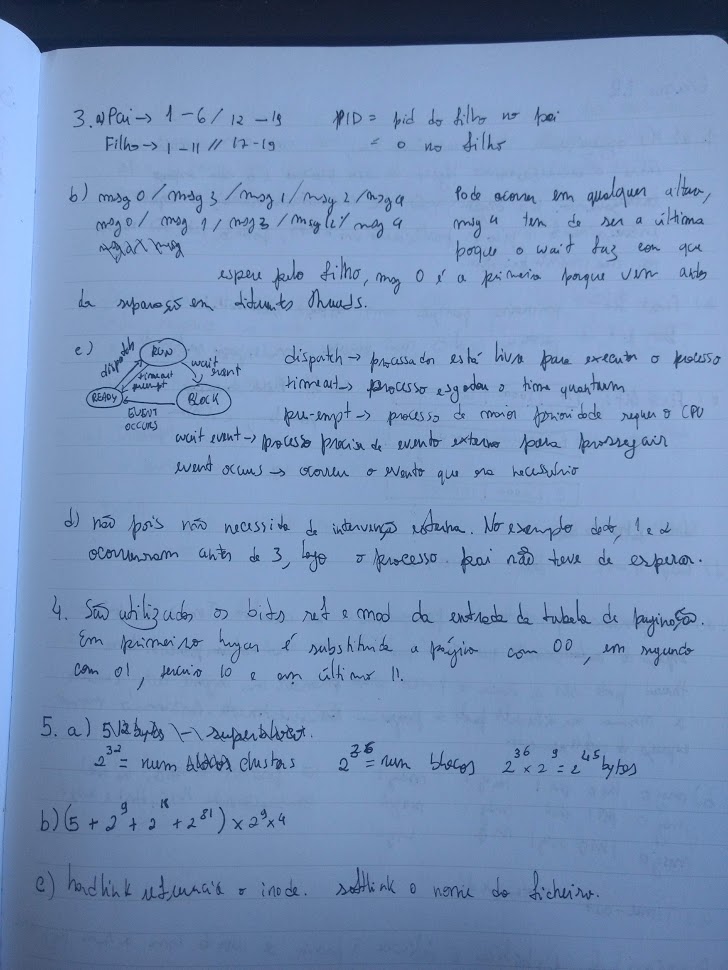 3. a) Pai → 1 - 6 / 12 - 19 PID = pid do filho no pai
Filho → 1 - 11 // 17-19 = 0 no filho
b) msg 0 / msg 3 / msg 1 / msg 2 / msg 4 Pode ocorrer em qualquer altura,
msg 0 / msg 1 / msg 3 / msg 2 / msg 4 msg 4 tem de ser a última
porque o wait faz com que
espere pelo filho, msg 0 é a primeira porque vem antes
da separação em diferentes threads.
c) RUN
dispatch timeout preempt wait event
READY BLOCK
EVENT OCCURS
dispatch → processador está livre para executar o processo
timeout → processo esgotou o time quantum
pre-empt → processo de maior prioridade requer o CPU
wait event → processo precisa de evento externo para prosseguir
event occurs → ocorreu o evento que era necessário
d) não pois não necessita de intervenção externa. No exemplo dado, 1 e 2
ocorreram antes de 3, logo o processo pai não teve de esperar.
4. São utilizados os bits ref e mod da entrada da tabela de paginação.
Em primeiro lugar é substituída a página com 00, em segundo
com 01, terceiro 10 e em último 11.
5. a) 512 bytes \-\ superbloco.
2^32 = num clusters 2^36 = num blocos 2^36 × 2^9 = 2^45 bytes
b) (5 + 2^9 + 2^18 + 2^81) × 2^9 × 4
c) hardlink referencia o inode. softlink o nome do ficheiro.